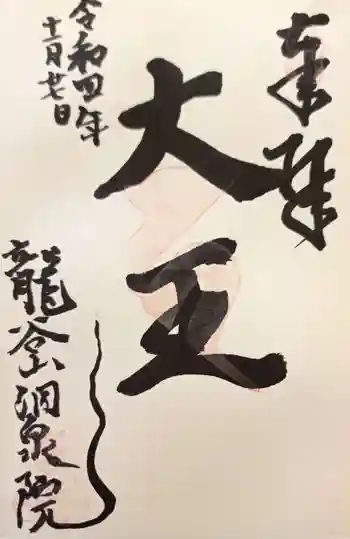 奉拝
大王
令和四年
十一月廿日
龍谷山洞泉院